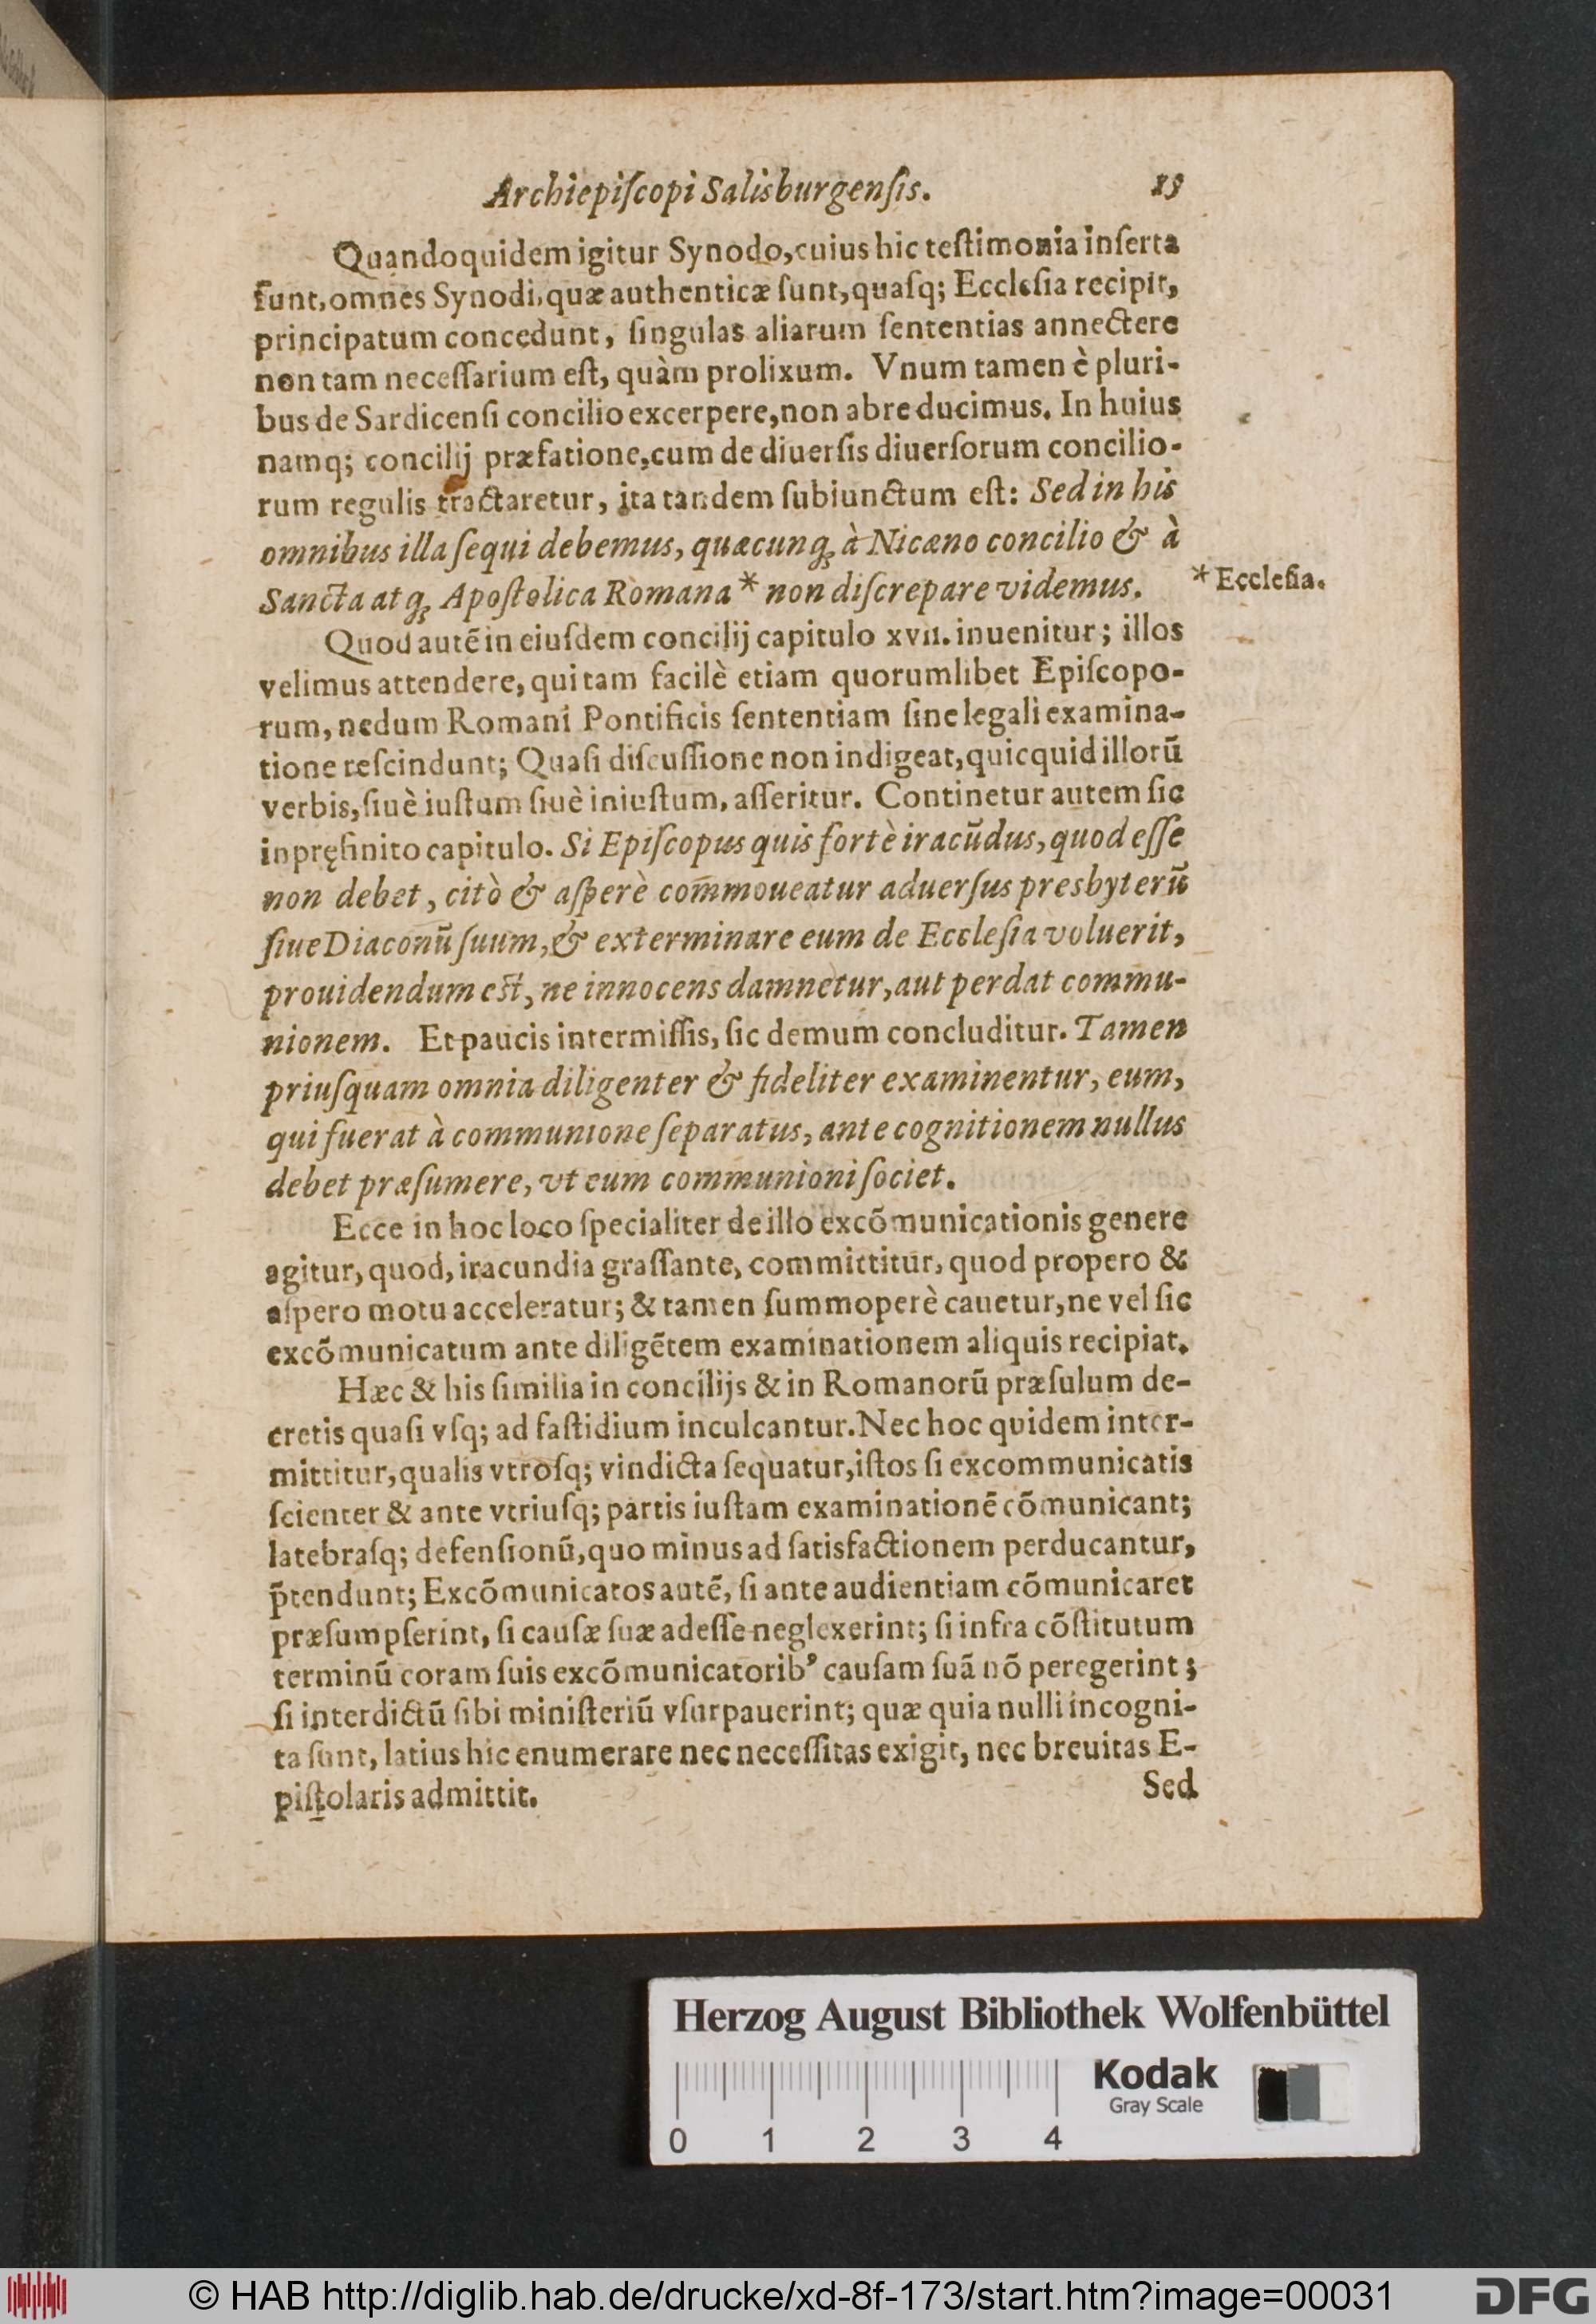 Archiepiſcopi Salisburgenſis. 13
Quandoquidem igitur Synodo, cuius hic teſtimonia inſerta
ſunt, omnes Synodi, quæ authenticæ ſunt, quaſq; Eccleſia recipit,
principatum concedunt, ſingulas aliarum ſententias annectere
non tam neceſſarium eſt, quàm prolixum. Vnum tamen è pluri-
bus de Sardicenſi concilio excerpere, non abre ducimus. In huius
namq; concilij præfatione, cum de diuerſis diuerſorum concilio-
rum regulis tractaretur, ita tandem ſubiunctum eſt: Sed in his
omnibus illa ſequi debemus, quæcunq; à Nicæno concilio & à
Sancta atq; Apoſtolica Romana * non diſcrepare videmus.
* Eccleſia.
Quod autē in eiuſdem concilij capitulo xvii. inuenitur; illos
velimus attendere, qui tam facilè etiam quorumlibet Epiſcopo-
rum, nedum Romani Pontificis ſententiam ſine legali examina-
tione reſcindunt; Quaſi diſcuſſione non indigeat, quicquid illorū
verbis, ſiuè iuſtum ſiuè iniuſtum, aſſeritur. Continetur autem ſic
in pręfinito capitulo. Si Epiſcopus quis fortè iracūdus, quod eſſe
non debet, citò & aſperè com̄moueatur aduerſus presbyterū
ſiue Diaconū ſuum, & exterminare eum de Eccleſia voluerit,
prouidendum eſt, ne innocens damnetur, aut perdat commu-
nionem. Et paucis intermiſſis, ſic demum concluditur. Tamen
priuſquam omnia diligenter & fideliter examinentur, eum,
qui fuerat à communione ſeparatus, ante cognitionem nullus
debet præſumere, vt eum communioni ſociet.
Ecce in hoc loco ſpecialiter de illo excōmunicationis genere
agitur, quod, iracundia graſſante, committitur, quod propero &
aſpero motu acceleratur; & tamen ſummoperè cauetur, ne vel ſic
excōmunicatum ante diligētem examinationem aliquis recipiat.
Hæc & his ſimilia in concilijs & in Romanorū præſulum de-
cretis quaſi vſq; ad faſtidium inculcantur. Nec hoc quidem inter-
mittitur, qualis vtroſq; vindicta ſequatur, iſtos ſi excommunicatis
ſcienter & ante vtriuſq; partis iuſtam examinationē cōmunicant;
latebraſq; defenſionū, quo minus ad ſatisfactionem perducantur,
p̄tendunt; Excōmunicatos autē, ſi ante audientiam cōmunicare
præſumpſerint, ſi cauſæ ſuæ adeſſe neglexerint; ſi infra cōſtitutum
terminū coram ſuis excōmunicatorib' cauſam ſuā nō peregerint;
ſi interdictū ſibi miniſteriū vſurpauerint; quæ quia nulli incogni-
ta ſunt, latius hic enumerare nec neceſſitas exigit, nec breuitas E-
piſtolaris admittit.
Sed
Herzog August Bibliothek Wolfenbüttel
Kodak
Gray Scale
0 1 2 3 4
© HAB http://diglib.hab.de/drucke/xd-8f-173/start.htm?image=00031
DFG